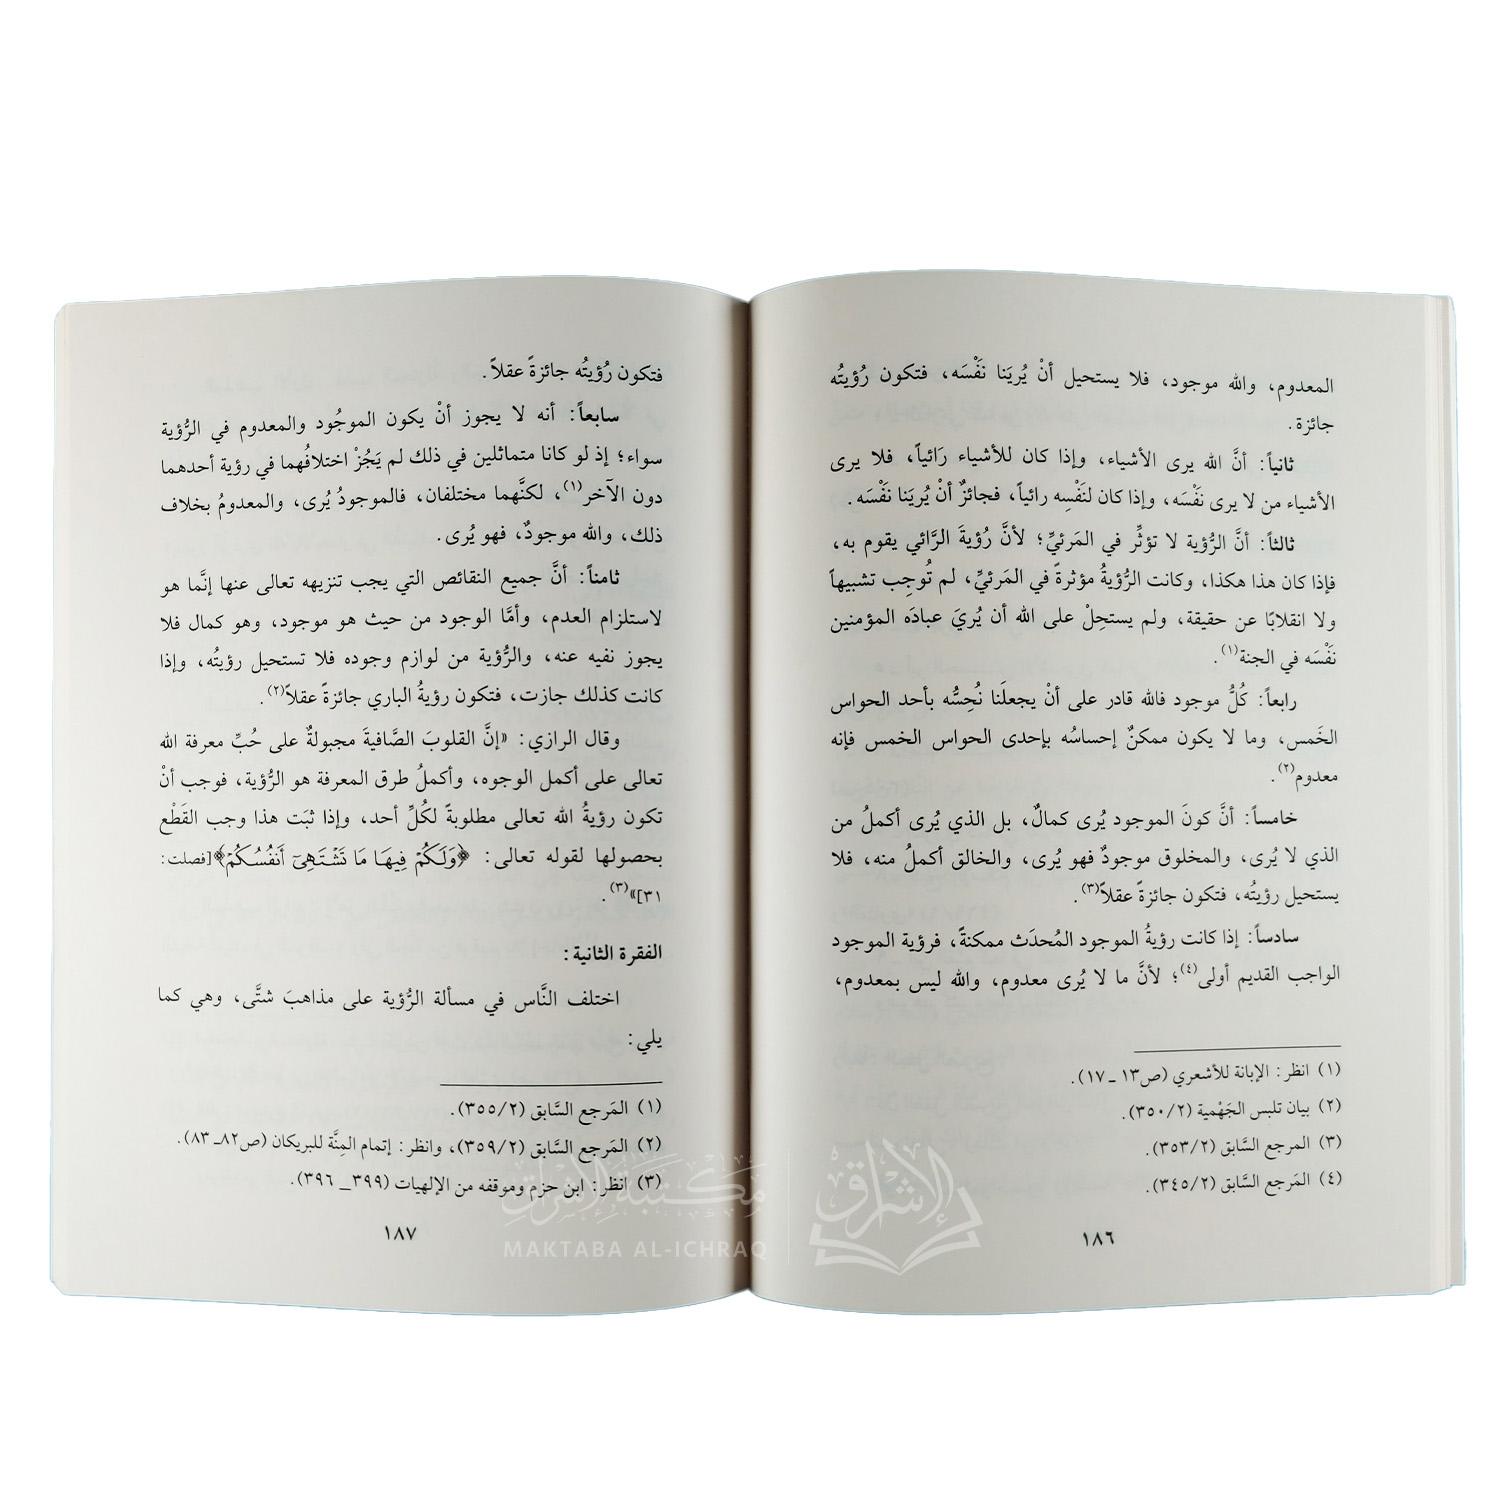 المعدوم، والله موجود، فلا يستحيل أنْ يُريَنا نَفْسَه، فتكون رُؤيتُه
جائزة.
ثانياً: أنَّ الله يرى الأشياء، وإذا كان للأشياء رَائياً، فلا يرى
الأشياء من لا يرى نَفْسَه، وإذا كان لنَفْسِه رائياً، فجائزٌ أنْ يُريَنا نَفْسَه.
ثالثاً: أنَّ الرُّؤية لا تؤثِّر في المَرئيِّ؛ لأنَّ رُؤيةَ الرَّائي يقوم به،
فإذا كان هذا هكذا، وكانت الرُّؤيةُ مؤثرةً في المَرئيِّ، لم تُوجِب تشبيهاً
ولا انقلابًا عن حقيقة، ولم يستحِلْ على الله أن يُريَ عبادَه المؤمنين
نَفْسَه في الجنة(١).
رابعاً: كُلُّ موجود فالله قادر على أنْ يجعلَنا نُحِسُّه بأحد الحواس
الخَمس، وما لا يكون ممكنٌ إحساسُه بإحدى الحواس الخمس فإنه
معدوم(٢).
خامساً: أنَّ كونَ الموجود يُرى كمالٌ، بل الذي يُرى أكملُ من
الذي لا يُرى، والمخلوق موجودٌ فهو يُرى، والخالق أكملُ منه، فلا
يستحيل رؤيتُه، فتكون جائزةً عقلاً(٣).
سادساً: إذا كانت رؤيةُ الموجود المُحدَث ممكنةً، فرؤية الموجود
الواجب القديم أولى(٤)؛ لأنَّ ما لا يُرى معدوم، والله ليس بمعدوم،
(١) انظر: الإبانة للأشعري (ص١٣ ـ ١٧).
(٢) بيان تلبس الجَهْمية (٢/ ٣٥٠).
(٣) المرجع السَّابق (٢/ ٣٥٣).
(٤) المَرجع السَّابق (٢/ ٣٤٥).
١٨٦
فتكون رُؤيتُه جائزةً عقلاً.
سابعاً: أنه لا يجوز أنْ يكون الموجُود والمعدوم في الرُّؤية
سواء؛ إذ لو كانا متماثلين في ذلك لم يَجُزْ اختلافُهما في رؤية أحدهما
دون الآخر(١)، لكنَّهما مختلفان، فالموجودُ يُرى، والمعدومُ بخلاف
ذلك، والله موجودٌ، فهو يُرى.
ثامناً: أنَّ جميع النقائص التي يجب تنزيهه تعالى عنها إنَّما هو
لاستلزام العدم، وأمَّا الوجود من حيث هو موجود، وهو كمال فلا
يجوز نفيه عنه، والرُّؤية من لوازم وجوده فلا تستحيل رؤيتُه، وإذا
كانت كذلك جازت، فتكون رؤيةُ الباري جائزةً عقلاً(٢).
وقال الرازي: «إنَّ القلوبَ الصَّافيةَ مجبولةٌ على حُبِّ معرفة الله
تعالى على أكمل الوجوه، وأكملُ طرق المعرفة هو الرُّؤية، فوجب أنْ
تكون رؤيةُ الله تعالى مطلوبةً لكُلِّ أحد، وإذا ثبَت هذا وجب القَطْع
بحصولها لقوله تعالى: ﴿وَلَكُمْ فِيهَا مَا تَشْتَهِىٓ أَنفُسُكُمْ﴾[فصلت:
٣١]»(٣).
الفقرة الثانية:
اختلف النَّاس في مسألة الرُّؤية على مذاهبَ شتَّى، وهي كما
يلي:
(١) المَرجع السَّابق (٢/ ٣٥٥).
(٢) المَرجع السَّابق (٢/ ٣٥٩)، وانظر: إتمام المِنَّة للبريكان (ص٨٢ـ ٨٣).
(٣) انظر: ابن حزم وموقفه من الإلهيات (٣٩٩ـ ٣٩٦).
١٨٧
مكتبة الإشراق
الإشراق
MAKTABA AL-ICHRAQ